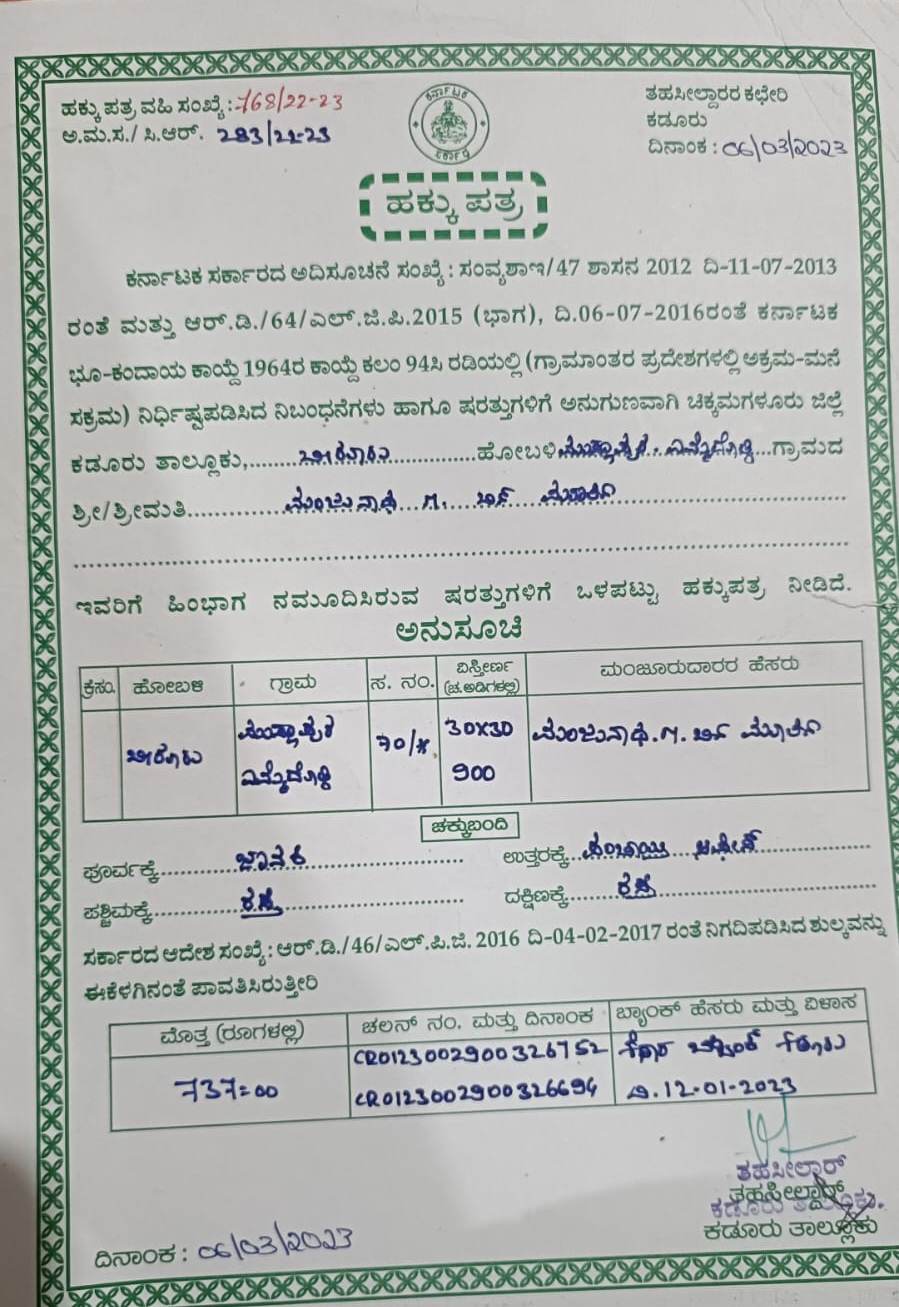 ಹಕ್ಕು ಪತ್ರ ವಹಿ ಸಂಖ್ಯೆ: 768/22-23
ಅ.ಮ.ಸ./ ಸಿ.ಆರ್. 283/22-23
ತಹಸೀಲ್ದಾರರ ಕಛೇರಿ
ಕಡೂರು
ದಿನಾಂಕ : 06/03/2023
ಹಕ್ಕು ಪತ್ರ
ಕರ್ನಾಟಕ ಸರ್ಕಾರದ ಅದಿಸೂಚನೆ ಸಂಖ್ಯೆ: ಸಂವ್ಯಶಾಇ/47 ಶಾಸನ 2012 ದಿ-11-07-2013
ರಂತೆ ಮತ್ತು ಆರ್.ಡಿ./64/ಎಲ್.ಜಿ.ಪಿ.2015 (ಭಾಗ), ದಿ.06-07-2016ರಂತೆ ಕರ್ನಾಟಕ
ಭೂ-ಕಂದಾಯ ಕಾಯ್ದೆ 1964ರ ಕಾಯ್ದೆ ಕಲಂ 94ಸಿ ರಡಿಯಲ್ಲಿ (ಗ್ರಾಮಾಂತರ ಪ್ರದೇಶಗಳಲ್ಲಿ ಅಕ್ರಮ-ಮನೆ
ಸಕ್ರಮ) ನಿರ್ಧಿಷ್ಟಪಡಿಸಿದ ನಿಬಂಧನೆಗಳು ಹಾಗೂ ಷರತ್ತುಗಳಿಗೆ ಅನುಗುಣವಾಗಿ ಚಿಕ್ಕಮಗಳೂರು ಜಿಲ್ಲೆ
ಕಡೂರು ತಾಲ್ಲೂಕು,......ಬೀರೂರು......ಹೋಬಳಿ ...... ಗ್ರಾಮದ
ಶ್ರೀ/ಶ್ರೀಮತಿ......ಮಂಜುನಾಥ
ಇವರಿಗೆ ಹಿಂಭಾಗ ನಮೂದಿಸಿರುವ ಷರತ್ತುಗಳಿಗೆ ಒಳಪಟ್ಟು ಹಕ್ಕುಪತ್ರ ನೀಡಿದೆ.
ಅನುಸೂಚಿ
ಕ್ರಸಂ. ಹೋಬಳಿ ಗ್ರಾಮ ಸ. ನಂ. ವಿಸ್ತೀರ್ಣ (ಚ.ಅಡಿಗಳಲ್ಲಿ) ಮಂಜೂರುದಾರರ ಹೆಸರು
ಬೀರೂರು 70/* 30X30 ಮಂಜುನಾಥ
900
ಚಕ್ಕುಬಂದಿ
ಪೂರ್ವಕ್ಕೆ......ಜಾನಕಿ...... ಉತ್ತರಕ್ಕೆ......
ಪಶ್ಚಿಮಕ್ಕೆ......ರಸ್ತೆ...... ದಕ್ಷಿಣಕ್ಕೆ......ರಸ್ತೆ......
ಸರ್ಕಾರದ ಆದೇಶ ಸಂಖ್ಯೆ: ಆರ್.ಡಿ./46/ಎಲ್.ಪಿ.ಜಿ. 2016 ದಿ-04-02-2017 ರಂತೆ ನಿಗದಿಪಡಿಸಿದ ಶುಲ್ಕವನ್ನು
ಈಕೆಳಗಿನಂತೆ ಪಾವತಿಸಿರುತ್ತೀರಿ
ಮೊತ್ತ (ರೂಗಳಲ್ಲಿ) ಚಲನ್ ನಂ. ಮತ್ತು ದಿನಾಂಕ ಬ್ಯಾಂಕ್ ಹೆಸರು ಮತ್ತು ವಿಳಾಸ
737=00 CR0123002900326752
CR0123002900326694 ದಿ. 12-01-2023
ತಹಸೀಲ್ದಾರ್
ತಹಸೀಲ್ದಾರ್
ಕಡೂರು ತಾಲ್ಲೂಕು.
ಕಡೂರು ತಾಲ್ಲೂಕು
ದಿನಾಂಕ : 06/03/2023